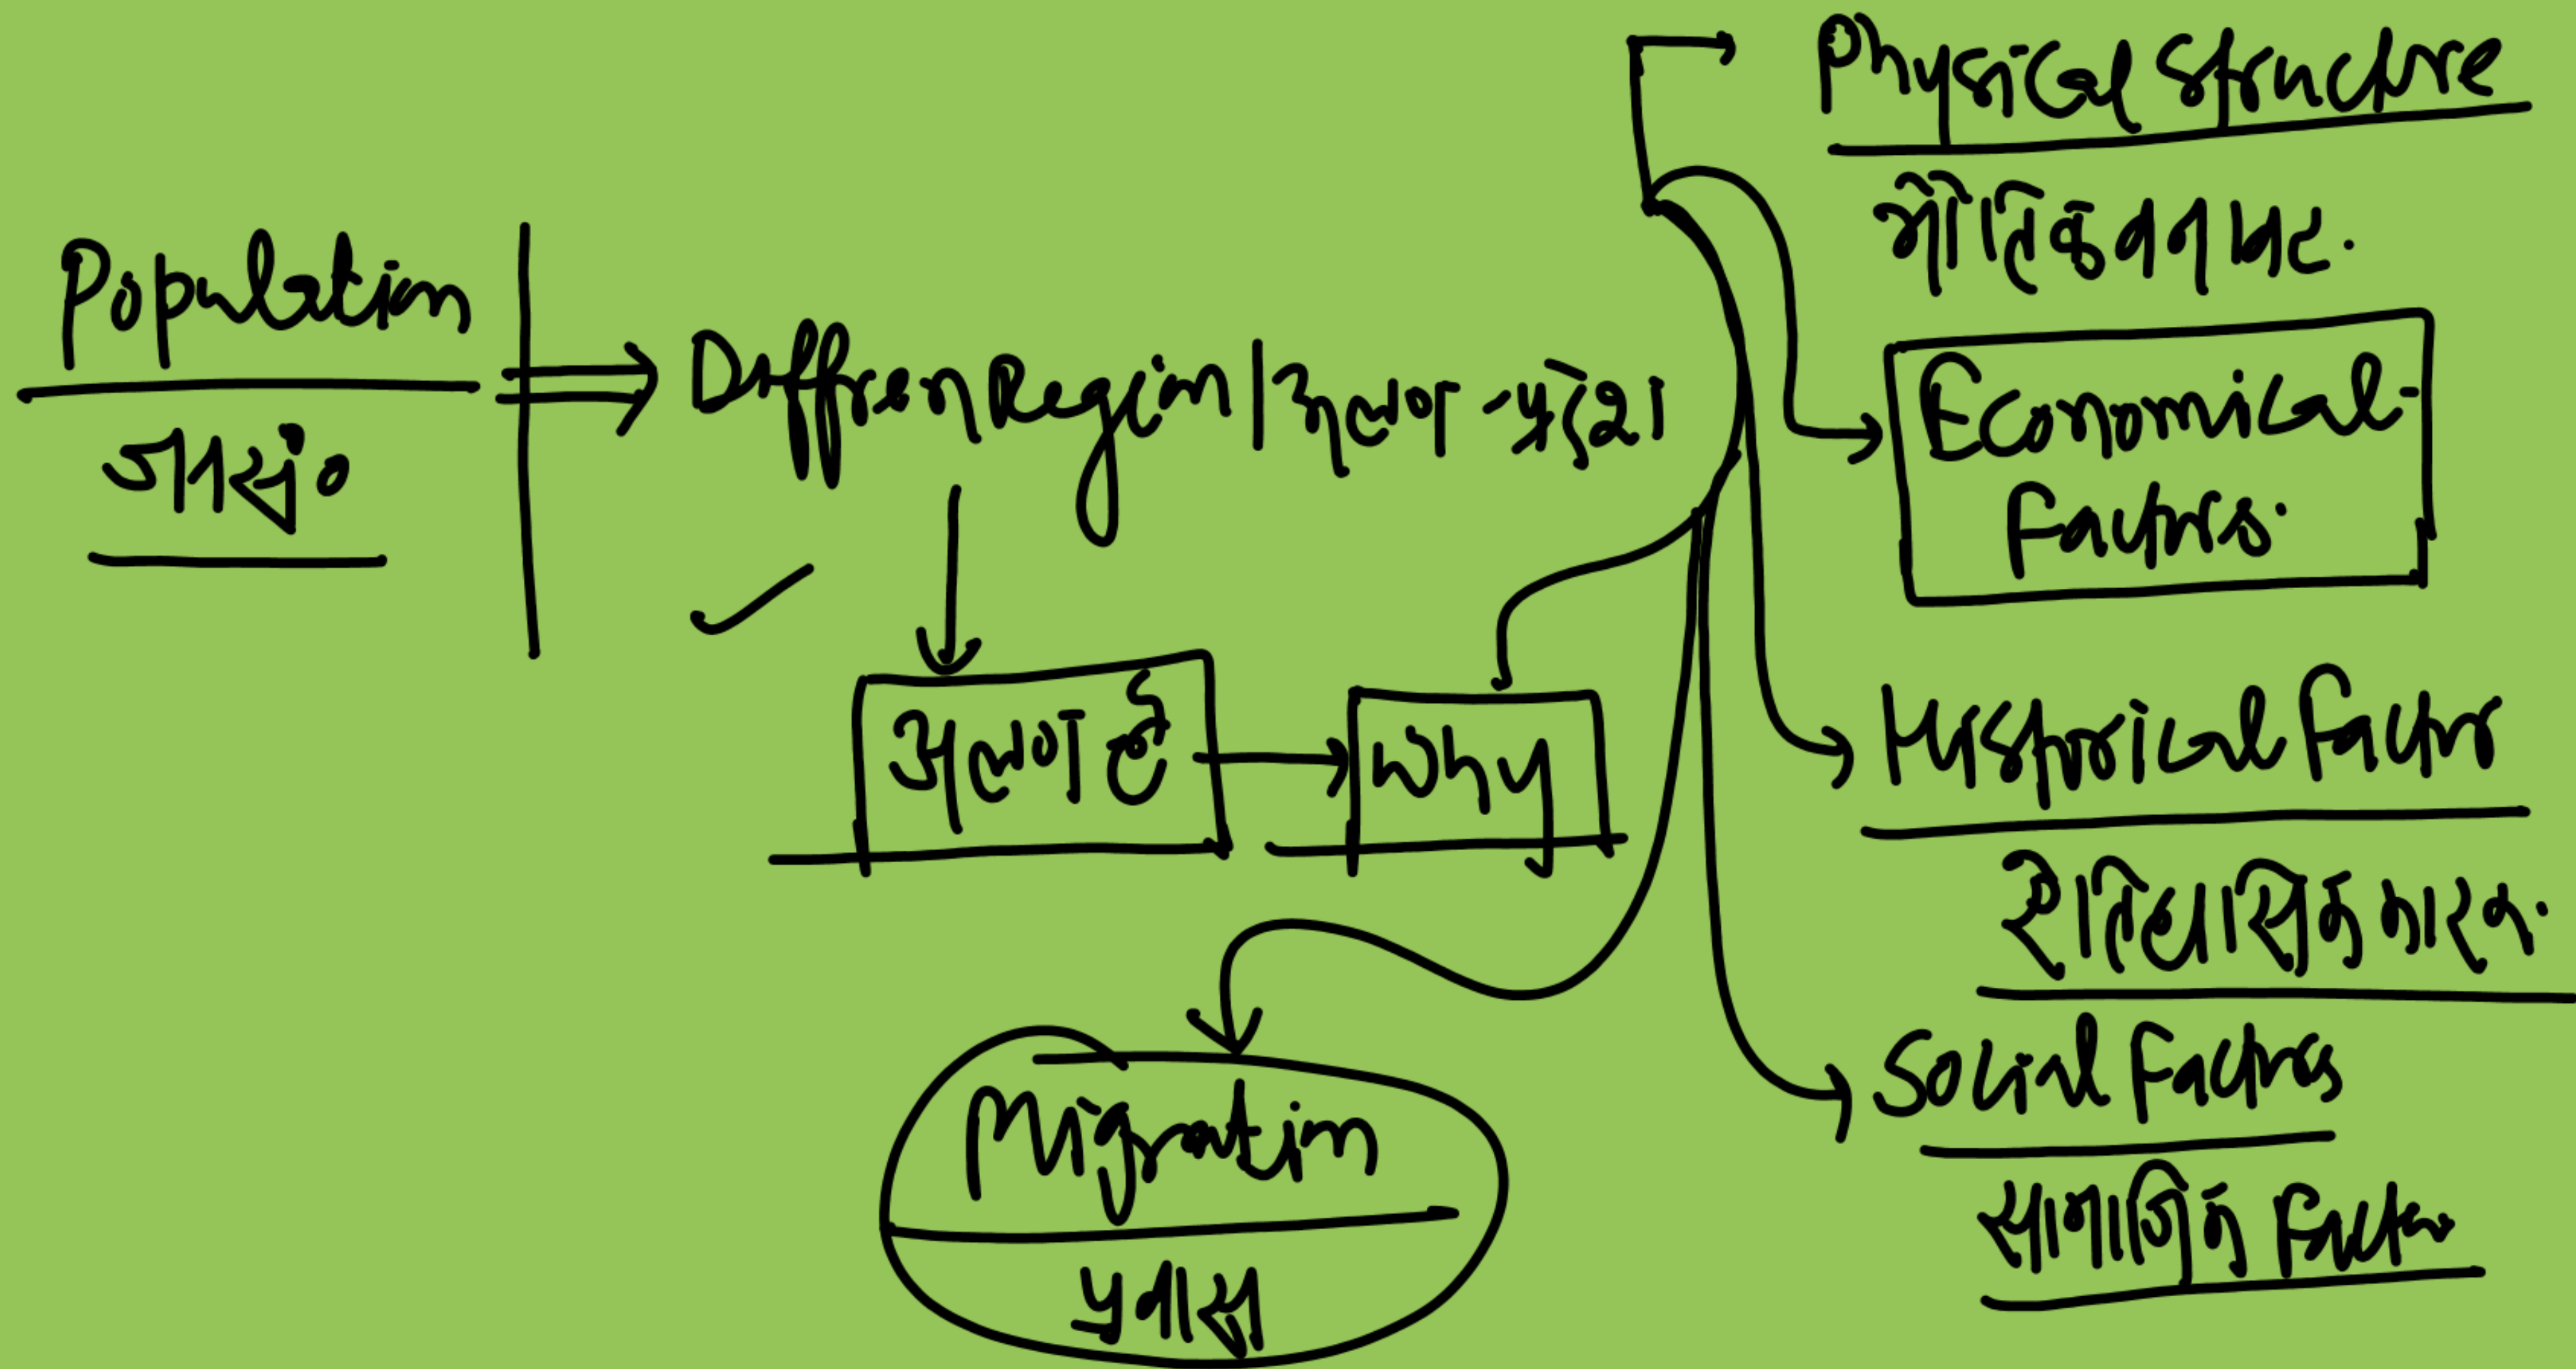 Population
जनसं०
Differen Region | अलग-प्रदेश
अलग है
Why
Physical Structure
भौतिक बनावट.
Economical-
Factors.
Historical Factor
ऐतिहासिक कारक.
Social Factors
सामाजिक Factor
Migration
प्रवास